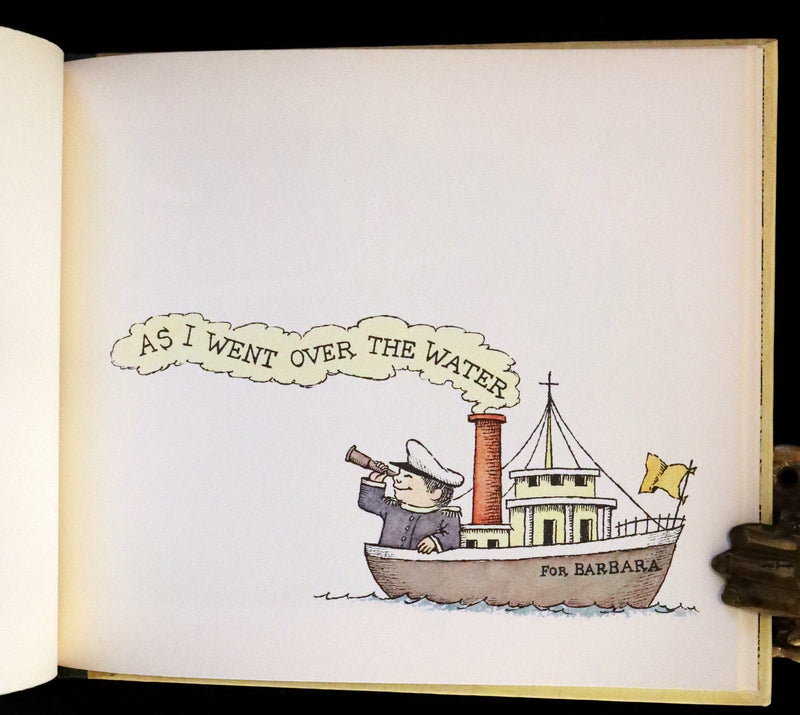 AS I WENT OVER THE WATER
FOR BARBARA